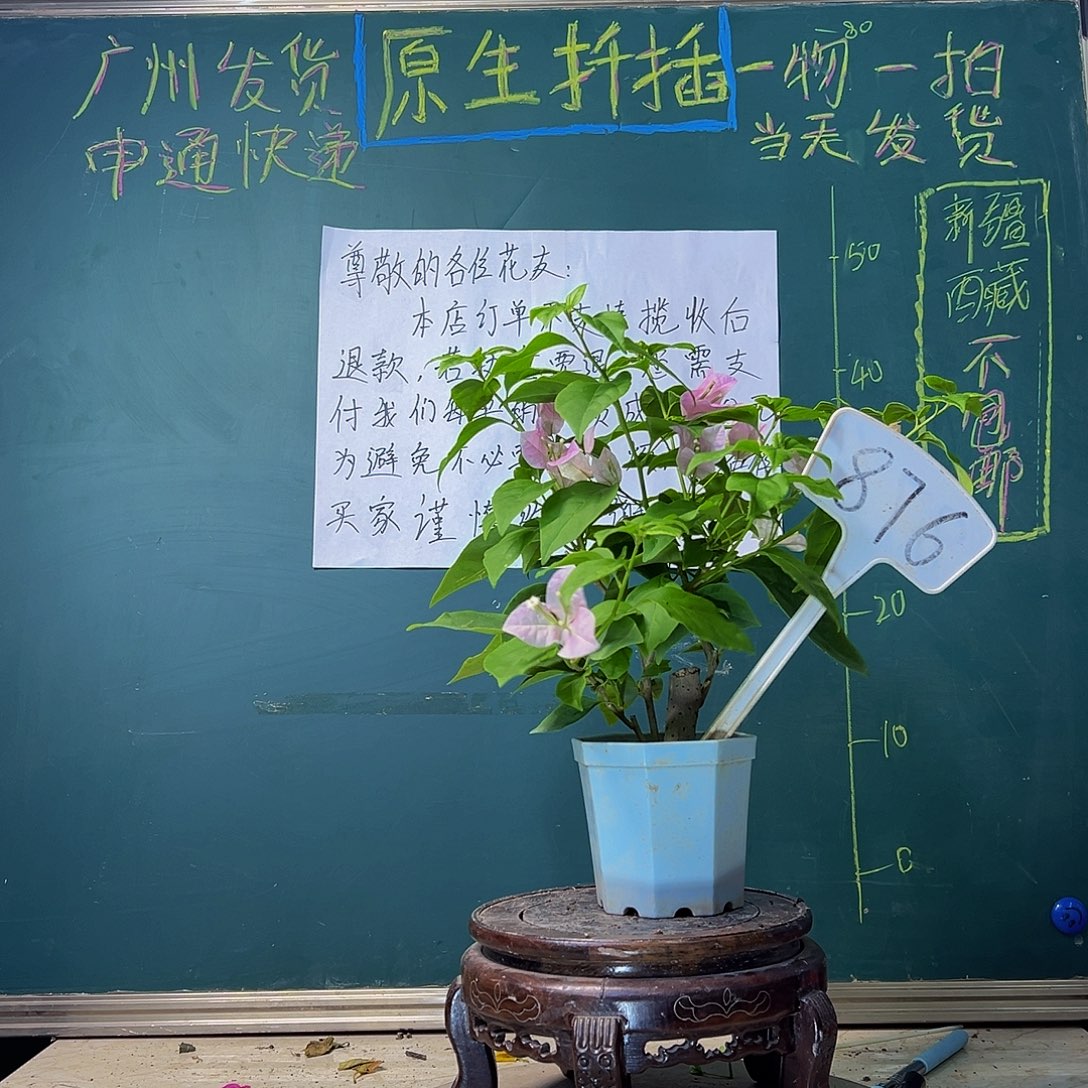 广州发货
申通快递
原生扦插
一物一拍
80
当天发货
新疆
西藏
不包邮
50
40
20
10
0
尊敬的各位花友:
本店订单 揽收后
退款,若 需支
付我们
为避免不必
买家谨慎
876